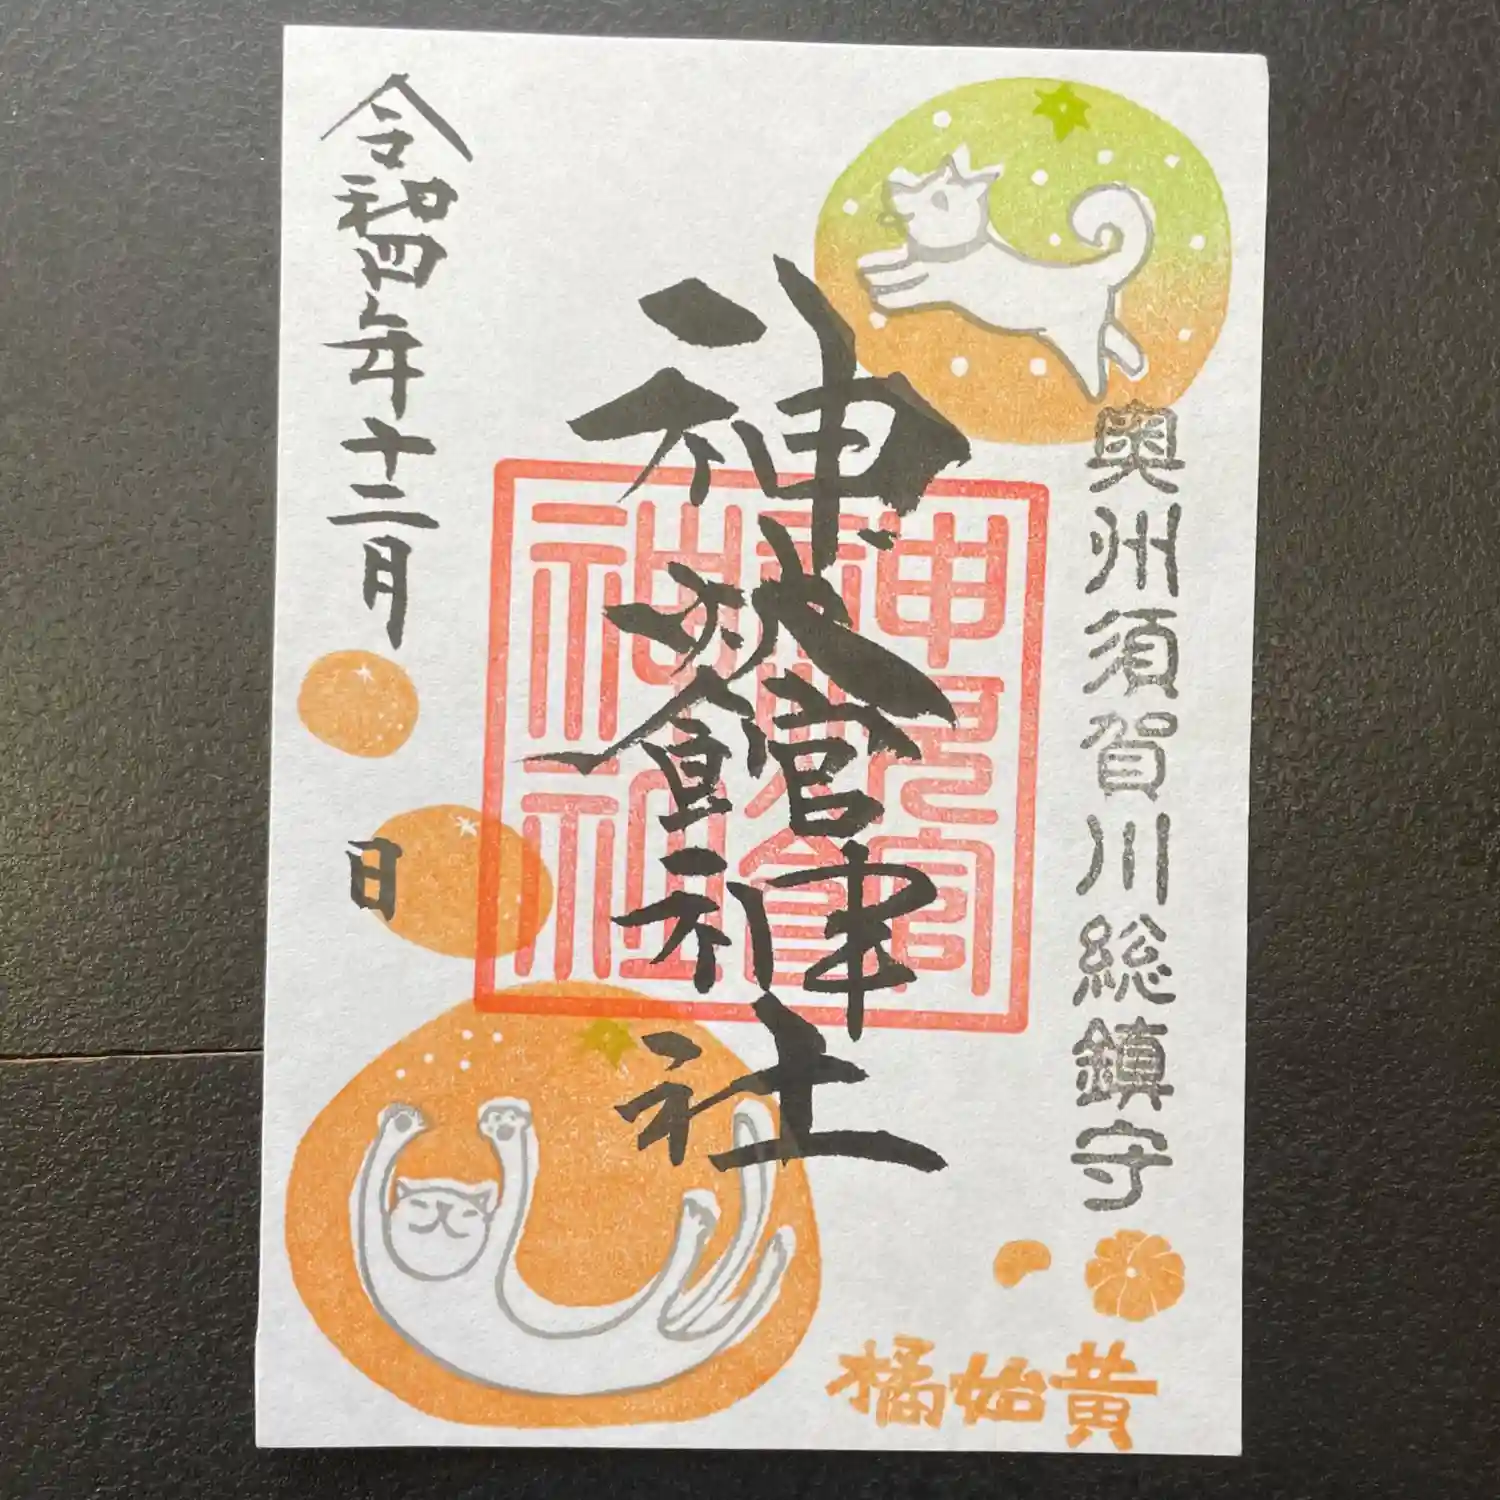 奥州須賀川総鎮守
神炊館神社
令和四年十二月
日
橘始黄